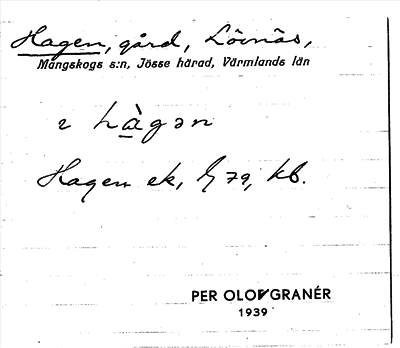 Hagen, gård, Lövnäs,
Mangskogs s:n, Jösse härad, Värmlands län
2 hàgən
Hagen ek, 79, kb.
PER OLOV GRANÉR
1939